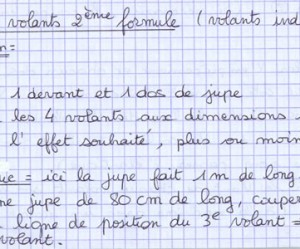 volants 2ème formule (volants ind
n =
1 devant et 1 dos de jupe
les 4 volants aux dimensions
l'effet souhaité, plus ou moin
ue = ici la jupe fait 1m de long
ne jupe de 80 cm de long, couper
ligne de position du 3e volant =
volant.